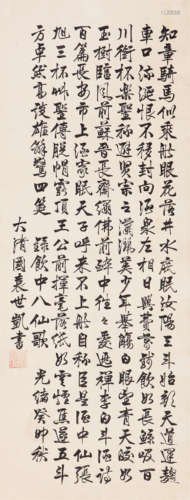 知章騎馬似乘船眼花落井水底眠汝陽三斗始朝天道逢麴
車口流涎恨不移封向酒泉左相日興費萬錢飲如長鯨吸百
川銜杯樂聖稱避賢宗之瀟灑美少年舉觴白眼望青天皎如
玉樹臨風前蘇晉長齋繡佛前醉中往々愛逃禪李白一斗詩
百篇長安市上酒家眠天子呼來不上船自稱臣是酒中仙張
旭三杯草聖傳脫帽露頂王公前揮毫落紙如雲煙焦遂五斗
方卓然高談雄辯驚四筵 錄飲中八仙歌 光緒癸卯秋
大清國袁世凱書